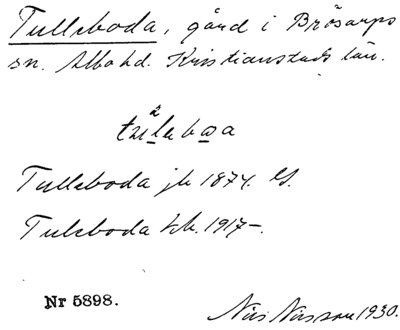 Tulleboda, gård i Brösarps
sn. Albo hd. Kristianstads län.
Tulleboda jb 1874.
Tuleboda kb. 1917-.
Nr 5898.
Nils Nilsson 1930.